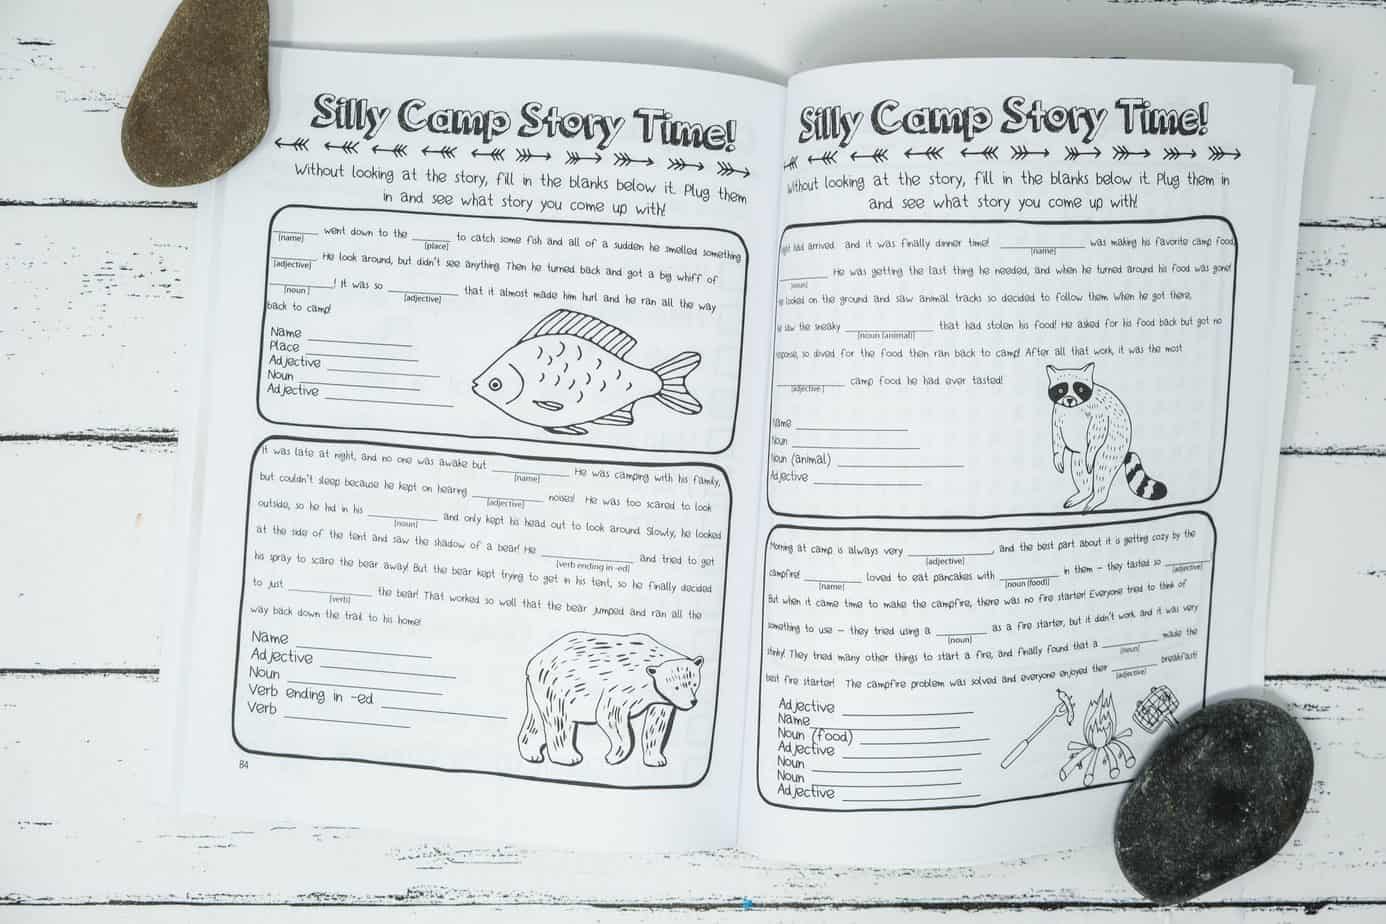 Silly Camp Story Time!
Without looking at the story, fill in the blanks below it. Plug them
in and see what story you come up with!
________ went down to the ________ to catch some fish and all of a sudden he smelled something
[name] [place]
________. He look around, but didn't see anything. Then he turned back and got a big whiff of
[adjective]
________! It was so ________ that it almost made him hurl and he ran all the way
[noun ] [adjective]
back to camp!
Name ________
Place ________
Adjective ________
Noun ________
Adjective ________
It was late at night, and no one was awake but ________. He was camping with his family,
[name]
but couldn't sleep because he kept on hearing ________ noises! He was too scared to look
[adjective]
outside, so he hid in his ________ and only kept his head out to look around. Slowly, he looked
[noun]
at the side of the tent and saw the shadow of a bear! He ________ and tried to get
[verb ending in -ed]
his spray to scare the bear away! But the bear kept trying to get in his tent, so he finally decided
to just ________ the bear! That worked so well that the bear jumped and ran all the
[verb]
way back down the trail to his home!
Name ________
Adjective ________
Noun ________
Verb ending in -ed ________
Verb ________
84
Silly Camp Story Time!
Without looking at the story, fill in the blanks below it. Plug them in
and see what story you come up with!
had arrived and it was finally dinner time! ________ was making his favorite camp food
[name]
________. He was getting the last thing he needed, and when he turned around his food was gone!
[noun]
looked on the ground and saw animal tracks so decided to follow them. When he got there,
saw the sneaky ________ that had stolen his food! He asked for his food back but got no
[noun (animal)]
so dived for the food then ran back to camp! After all that work, it was the most
________ camp food he had ever tasted!
[adjective ]
Name ________
Noun ________
Noun (animal) ________
Adjective ________
Morning at camp is always very ________, and the best part about it is getting cozy by the
[adjective]
campfire! ________ loved to eat pancakes with ________ in them - they tasted so ________.
[name] [noun (food)] [adjective]
But when it came time to make the campfire, there was no fire starter! Everyone tried to think of
something to use - they tried using a ________ as a fire starter, but it didn't work and it was very
[noun]
stinky! They tried many other things to start a fire, and finally found that a ________ made the
[noun]
best fire starter! The campfire problem was solved and everyone enjoyed their ________ breakfast!
[adjective]
Adjective ________
Name ________
Noun (food) ________
Adjective ________
Noun ________
Noun ________
Adjective ________